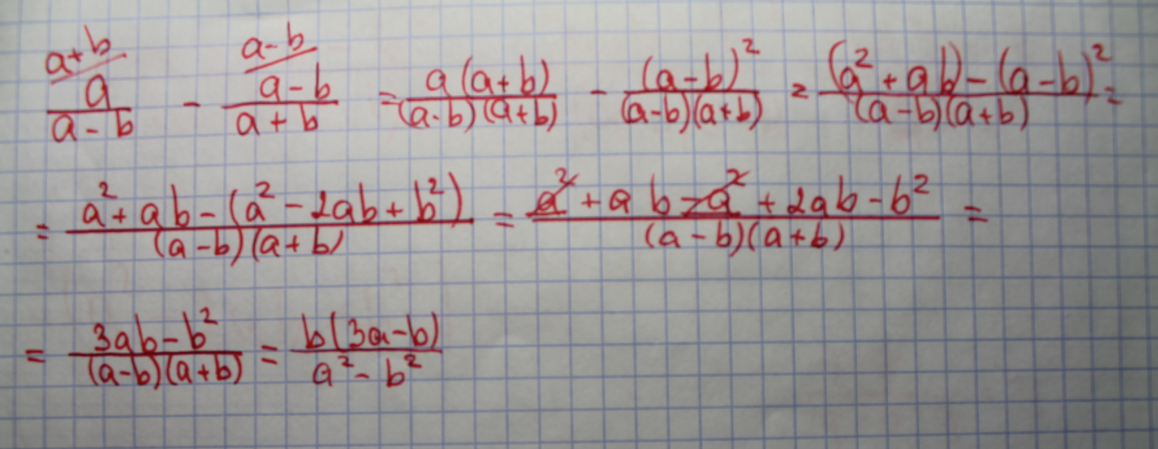 a+b/ a/(a-b) - a-b/ (a-b)/(a+b) = a(a+b)/(a-b)(a+b) - (a-b)²/(a-b)(a+b) = (a²+ab)-(a-b)²/(a-b)(a+b) =
= a²+ab-(a²-2ab+b²)/(a-b)(a+b) = a²+ab-a²+2ab-b²/(a-b)(a+b) =
= 3ab-b²/(a-b)(a+b) = b(3a-b)/a²-b²